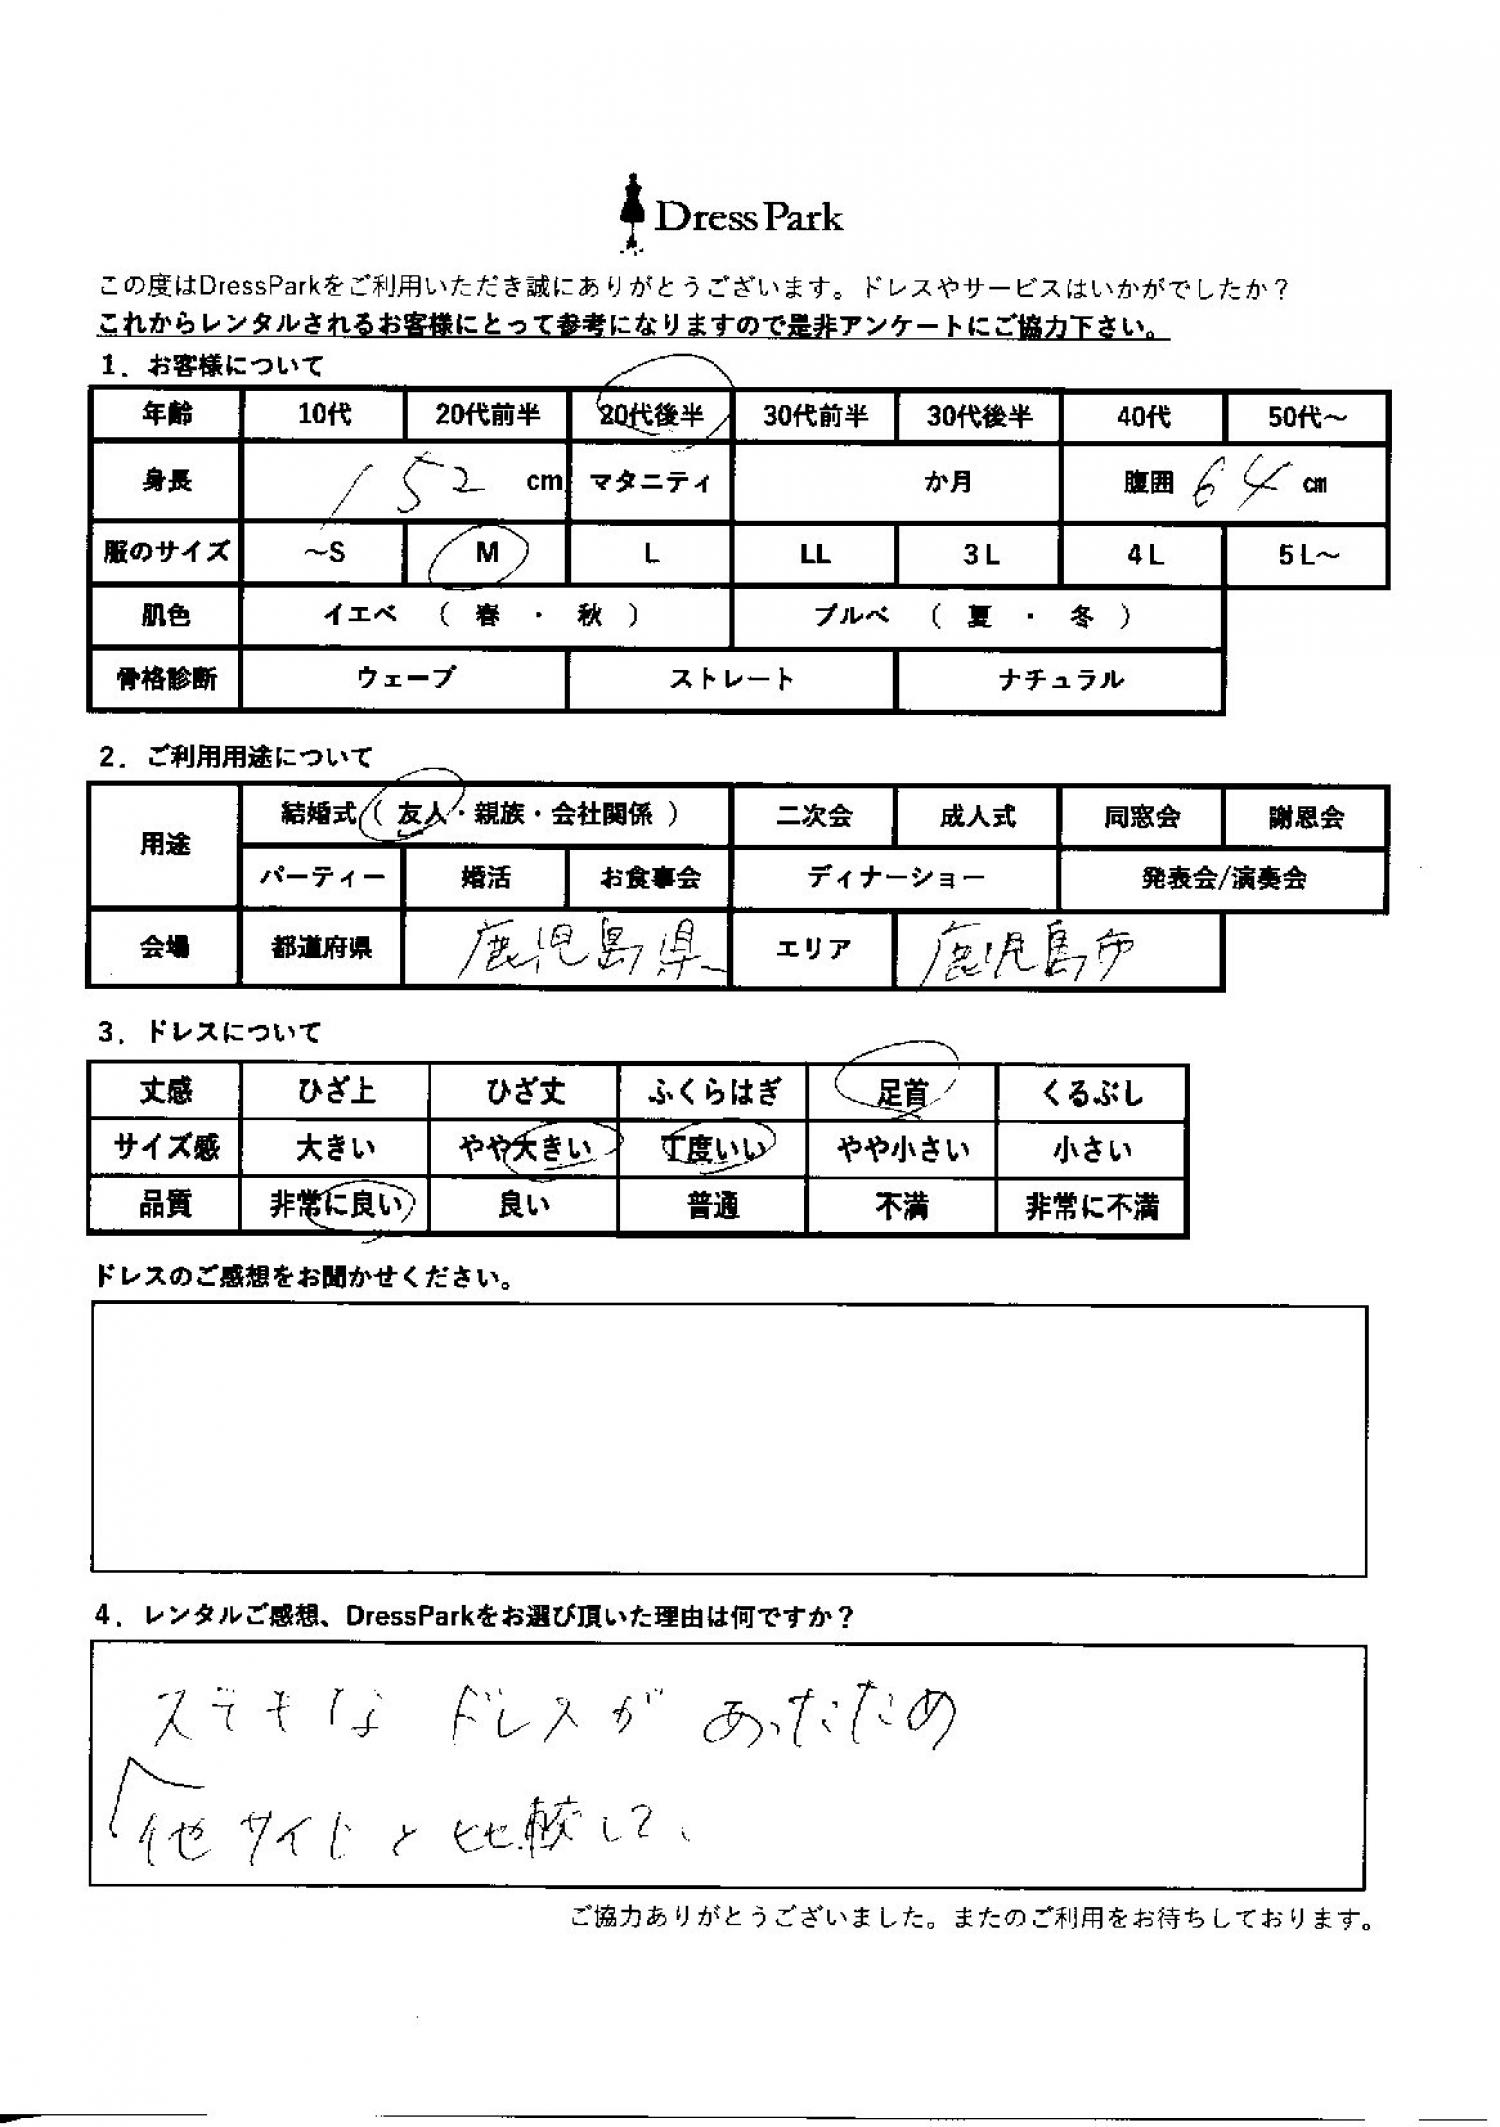 Dress Park
この度はDressParkをご利用いただき誠にありがとうございます。ドレスやサービスはいかがでしたか？
これからレンタルされるお客様にとって参考になりますので是非アンケートにご協力下さい。
1．お客様について
年齢 10代 20代前半 20代後半 30代前半 30代後半 40代 50代～
身長 152 cm マタニティ か月 腹囲 64 cm
服のサイズ ～S M L LL 3L 4L 5L～
肌色 イエベ （ 春 ・ 秋 ） ブルベ （ 夏 ・ 冬 ）
骨格診断 ウェーブ ストレート ナチュラル
2．ご利用用途について
用途 結婚式（ 友人・親族・会社関係 ） 二次会 成人式 同窓会 謝恩会
パーティー 婚活 お食事会 ディナーショー 発表会/演奏会
会場 都道府県 鹿児島県 エリア 鹿児島市
3．ドレスについて
丈感 ひざ上 ひざ丈 ふくらはぎ 足首 くるぶし
サイズ感 大きい やや大きい 丁度いい やや小さい 小さい
品質 非常に良い 良い 普通 不満 非常に不満
ドレスのご感想をお聞かせください。
4．レンタルご感想、DressParkをお選び頂いた理由は何ですか？
ステキなドレスがあったため
他サイトと比較して、
ご協力ありがとうございました。またのご利用をお待ちしております。